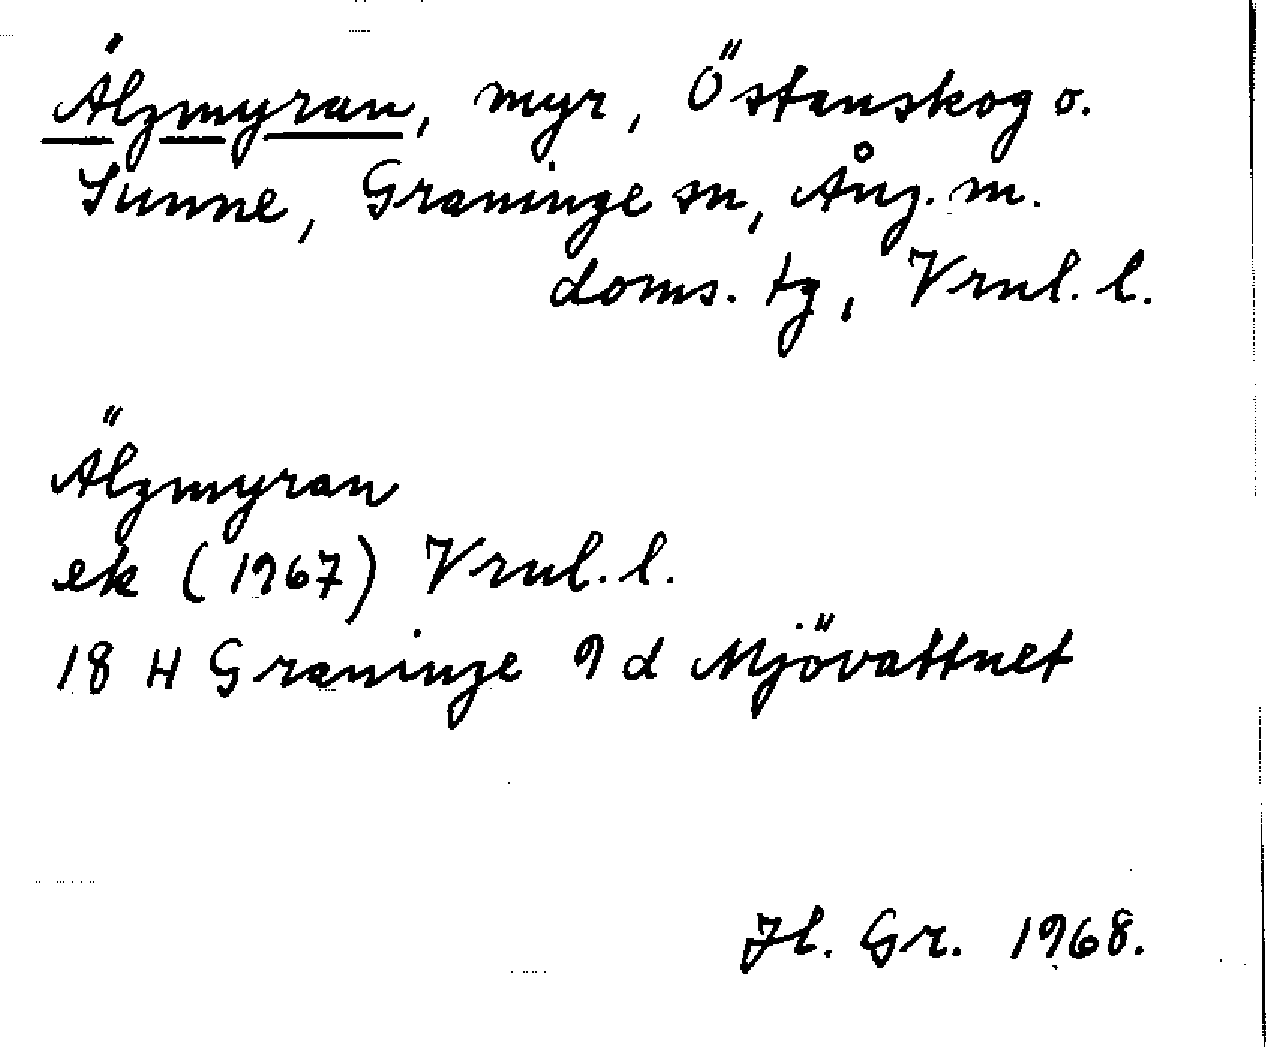 Älgmyran, myr, Östanskog o.
Sunne, Graninge sn, Ång. m.
doms. tg, Vrnl. l.
Älgmyran
ek (1967) Vrnl. l.
18 H Graninge 9 d Mjövattnet
Jl. Gr. 1968.